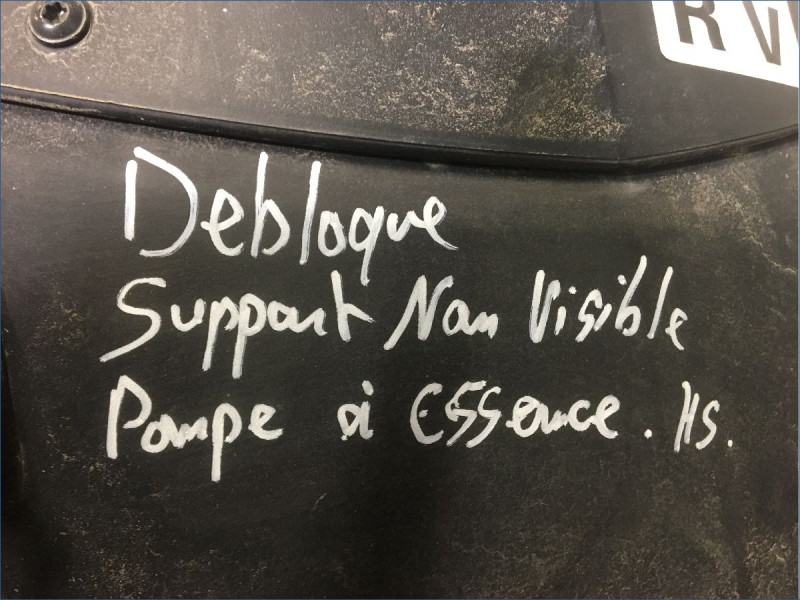 RV
Debloque
Support Non Visible
Pompe à Essence. HS.